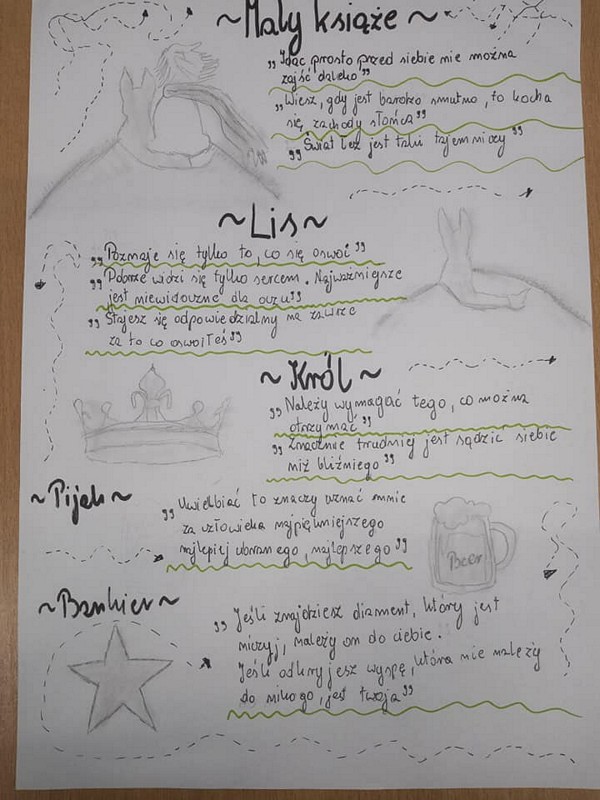 ~Mały książe~
„Idąc prosto przed siebie nie można
zajść daleko”
„Wiesz, gdy jest bardzo smutno, to kocha
się zachody słońca”
„Świat łez jest taki tajemniczy”
~Lis~
„Poznaje się tylko to, co się oswoi”
„Dobrze widzi się tylko sercem. Najważniejsze
jest niewidoczne dla oczu”
„Stajesz się odpowiedzialny na zawsze
za to co oswoiłeś”
~Król~
„Należy wymagać tego, co można
otrzymać”
„Znacznie trudniej jest sądzić siebie
niż bliźniego”
~Pijak~
„Uwielbiać to znaczy uznać mnie
za człowieka najpiękniejszego
najlepiej ubranego, najlepszego”
Beer
~Bankier~
„Jeśli znajdziesz diament, który jest
niczyj, należy on do ciebie.
Jeśli odkryjesz wyspę, która nie należy
do nikogo, jest twoja”